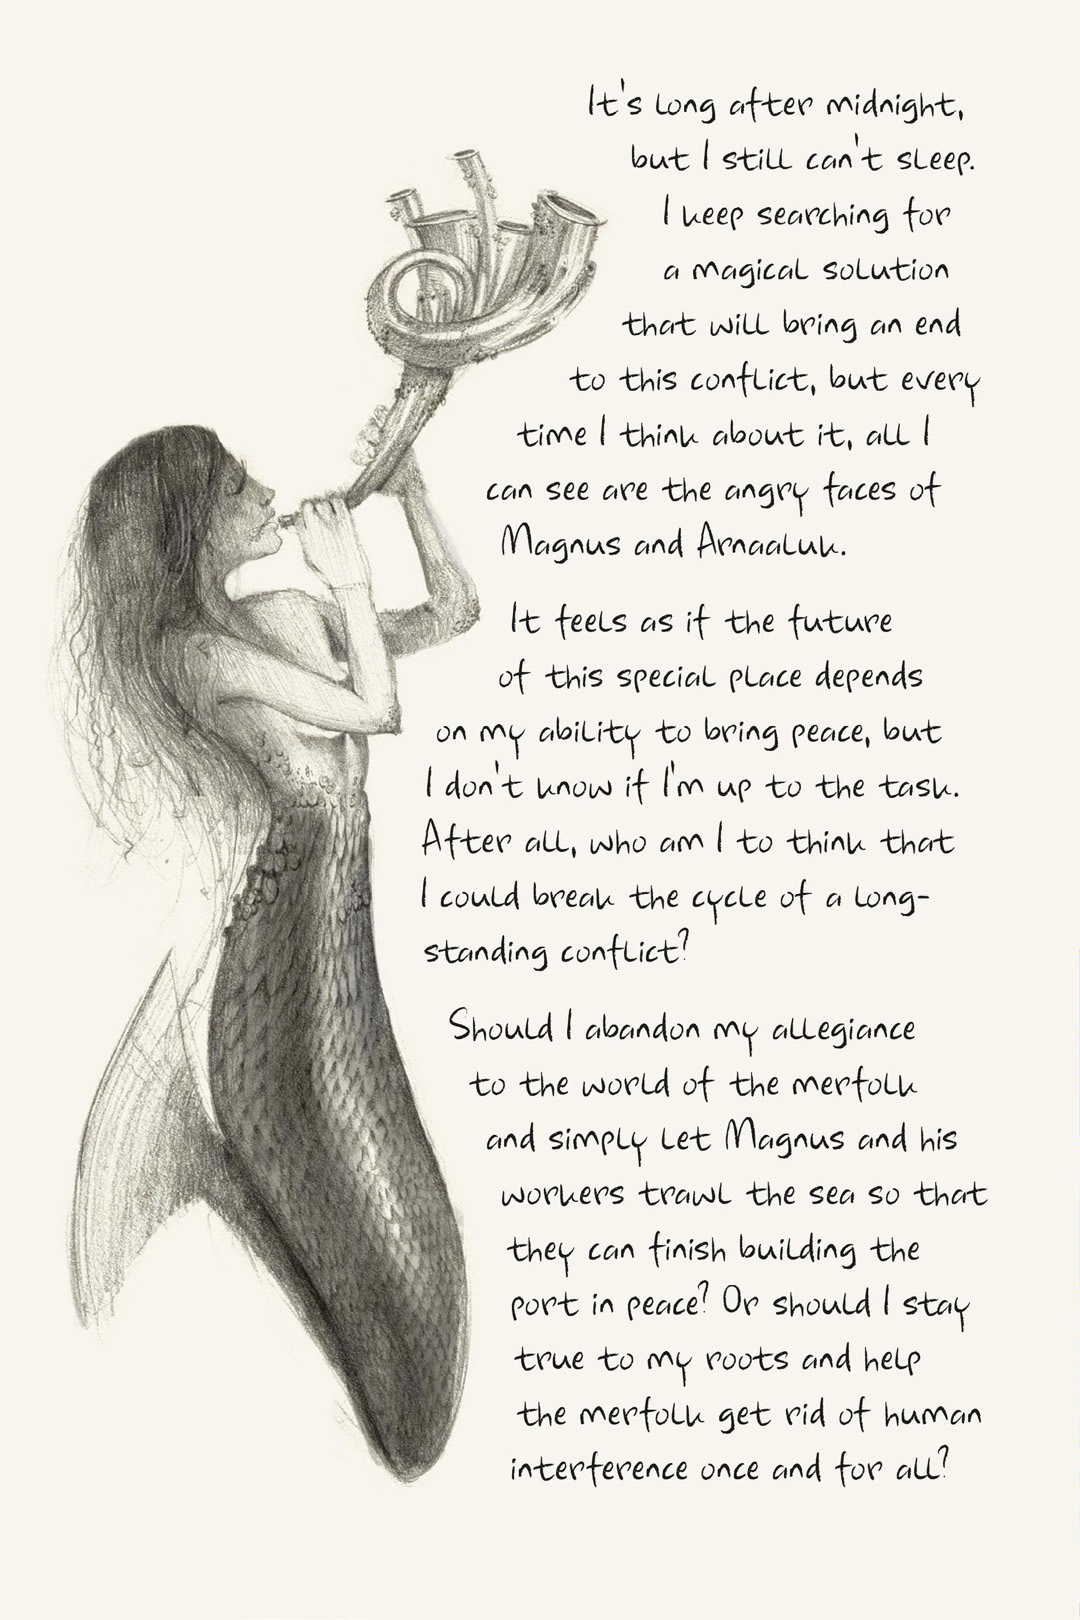 It's long after midnight,
but I still can't sleep.
I keep searching for
a magical solution
that will bring an end
to this conflict, but every
time I think about it, all I
can see are the angry faces of
Magnus and Arnaaluk.
It feels as if the future
of this special place depends
on my ability to bring peace, but
I don't know if I'm up to the task.
After all, who am I to think that
I could break the cycle of a long-
standing conflict?
Should I abandon my allegiance
to the world of the merfolk
and simply let Magnus and his
workers trawl the sea so that
they can finish building the
port in peace? Or should I stay
true to my roots and help
the merfolk get rid of human
interference once and for all?